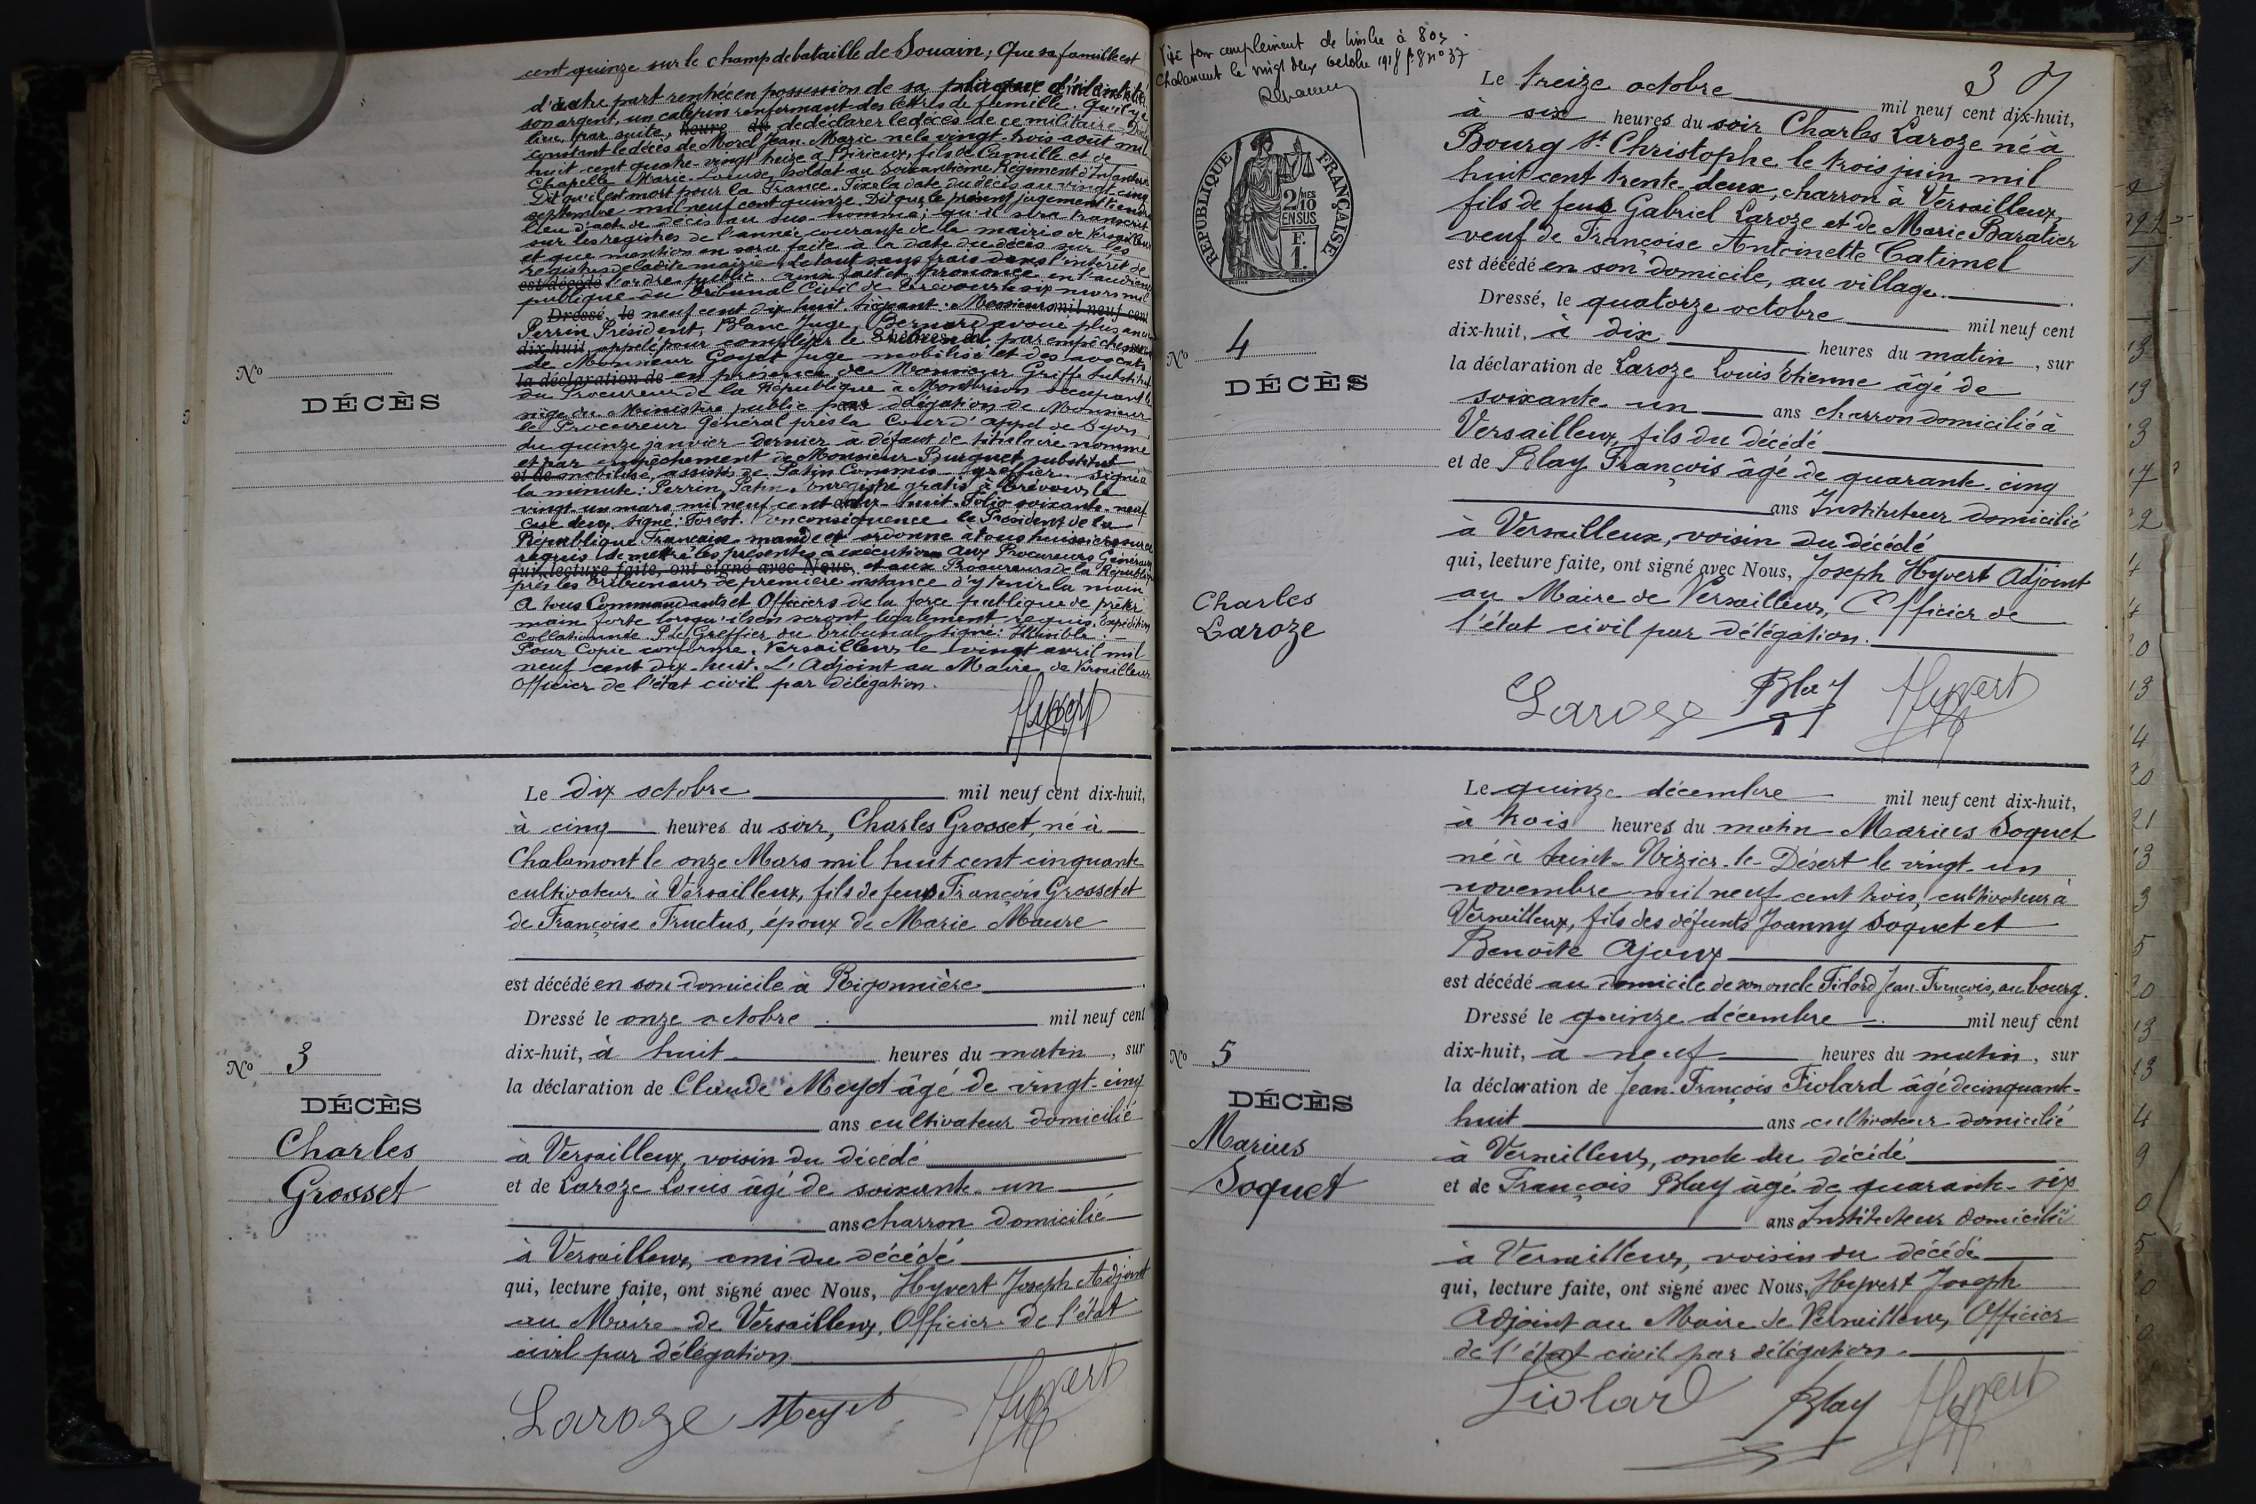 cent quinze sur le champ de bataille de Souain; Que sa famille est
d'autre part rentrée en possession de sa plaque d'identité
son argent, un calepin renfermant des lettres de famille. Qu'il y a
lieu par suite, heure du de déclarer le décès de ce militaire
constant le décès de Morel Jean-Marie né le vingt-trois août mil
huit cent quatre-vingt treize à Birieux, fils de Camille et de
Chapelle Marie-Louise, soldat au Soixantième Régiment d'Infanterie
Dit qu'il est mort pour la France. Fixe la date du décès au vingt cinq
septembre mil neuf cent quinze. Dit que le présent jugement tiendra
lieu d'acte de décès au sus-nommé; qu'il sera transcrit
sur les registres de l'année courante de la mairie de Versailleux
et que mention en sera faite à la date du décès sur les
registres de ladite mairie. Le tout sans frais dans l'intérêt de
est décédé l'ordre public. Ainsi fait et prononcé en l'audience
publique du Tribunal Civil de Trévoux le six mars mil
Dressé, le neuf cent dix huit. Siégeant: Messieurs mil neuf cent
Perrin Président, Blanc Juge, Bernard avoué plus ancien
dix-huit, appelé pour compléter le Tribunal, par empêchement
de Monsieur Goyat Juge mobilisé et des avocats
la déclaration de en présence de Monsieur Griffe Substitut
du Procureur de la République à Montbrison occupant le
siège du Ministère public par délégation de Monsieur
le Procureur Général près la Cour d'appel de Lyon
du quinze janvier dernier à défaut de titulaire nommé
et par empêchement de Monsieur Burguet, substitut
et de mobilisé, assistés de Patin Commis-greffier. Signé à
la minute: Perrin, Patin. Enregistré gratis à Trévoux le
vingt un mars mil neuf cent dix-huit. Folio soixante-neuf
Case deux. Signé: Forest. En conséquence le Président de la
République Française mande et ordonne à tous huissiers sur ce
requis de mettre les présentes à exécution Aux Procureurs Généraux
qui, lecture faite, ont signé avec Nous, et aux Procureurs de la République
près les Tribunaux de première instance d'y tenir la main
A tous Commandants et Officiers de la force publique de prêter
main forte lorsqu'ils en seront légalement requis. Expédition
collationnée. P. le Greffier du Tribunal signé: Illisible.
Pour Copie conforme. Versailleux le vingt avril mil
neuf cent dix-huit. L'Adjoint au Maire de Versailleux
Officier de l'état civil par délégation.
Hyvert
No
DÉCÈS
Le dix octobre mil neuf cent dix-huit,
à cinq heures du soir, Charles Grosset, né à
Chalamont le onze Mars mil huit cent cinquante
cultivateur à Versailleux, fils de feus François Grosset et
de Françoise Fructus, époux de Marie Maure
est décédé en son domicile à Rigonnière
Dressé le onze octobre mil neuf cent
dix-huit, à huit heures du matin, sur
la déclaration de Claude Meyet âgé de vingt-cinq
ans cultivateur domicilié
à Versailleux, voisin du décédé
et de Laroze Louis âgé de soixante-un
ans charron domicilié
à Versailleux, ami du décédé
qui, lecture faite, ont signé avec Nous, Hyvert Joseph Adjoint
au Maire de Versailleux, Officier de l'état
civil par délégation
Laroze Meyet Hyvert
No 3
DÉCÈS
Charles
Grosset
Visé pour complément de timbre à 80
Chalamont le vingt deux octobre 1918 fo 8 no 37
37
REPUBLIQUE FRANÇAISE
2/10 MES
EN SUS
F.
1.
Le treize octobre mil neuf cent dix-huit,
à six heures du soir Charles Laroze né à
Bourg St Christophe le trois juin mil
huit cent trente-deux, charron à Versailleux,
fils de feus Gabriel Laroze et de Marie Baratier
veuf de Françoise Antoinette Catimel
est décédé en son domicile, au village.
Dressé, le quatorze octobre mil neuf cent
dix-huit, à dix heures du matin, sur
la déclaration de Laroze Louis Etienne âgé de
soixante-un ans charron domicilié à
Versailleux, fils du décédé
et de Blay François âgé de quarante-cinq
ans Instituteur domicilié
à Versailleux, voisin du décédé
qui, lecture faite, ont signé avec Nous, Joseph Hyvert Adjoint
au Maire de Versailleux, Officier de
l'état civil par délégation.
Laroze Blay Hyvert
No 4
DÉCÈS
Charles
Laroze
Le quinze décembre mil neuf cent dix-huit,
à trois heures du matin Marius Soquet
né à Saint-Nizier-le-Désert le vingt-un
novembre mil neuf cent trois, cultivateur à
Versailleux, fils des défunts Joanny Soquet et
Benoîte Ajoux
est décédé au domicile de son oncle Fiolard Jean-François, au bourg.
Dressé le quinze décembre mil neuf cent
dix-huit, à neuf heures du matin, sur
la déclaration de Jean-François Fiolard âgé de cinquante-
huit ans cultivateur domicilié
à Versailleux, oncle du décédé
et de François Blay âgé de quarante-six
ans Instituteur domicilié
à Versailleux, voisin du décédé
qui, lecture faite, ont signé avec Nous, Hyvert Joseph
Adjoint au Maire de Versailleux, Officier
de l'état civil par délégation.
Fiolard Blay Hyvert
No 5
DÉCÈS
Marius
Soquet